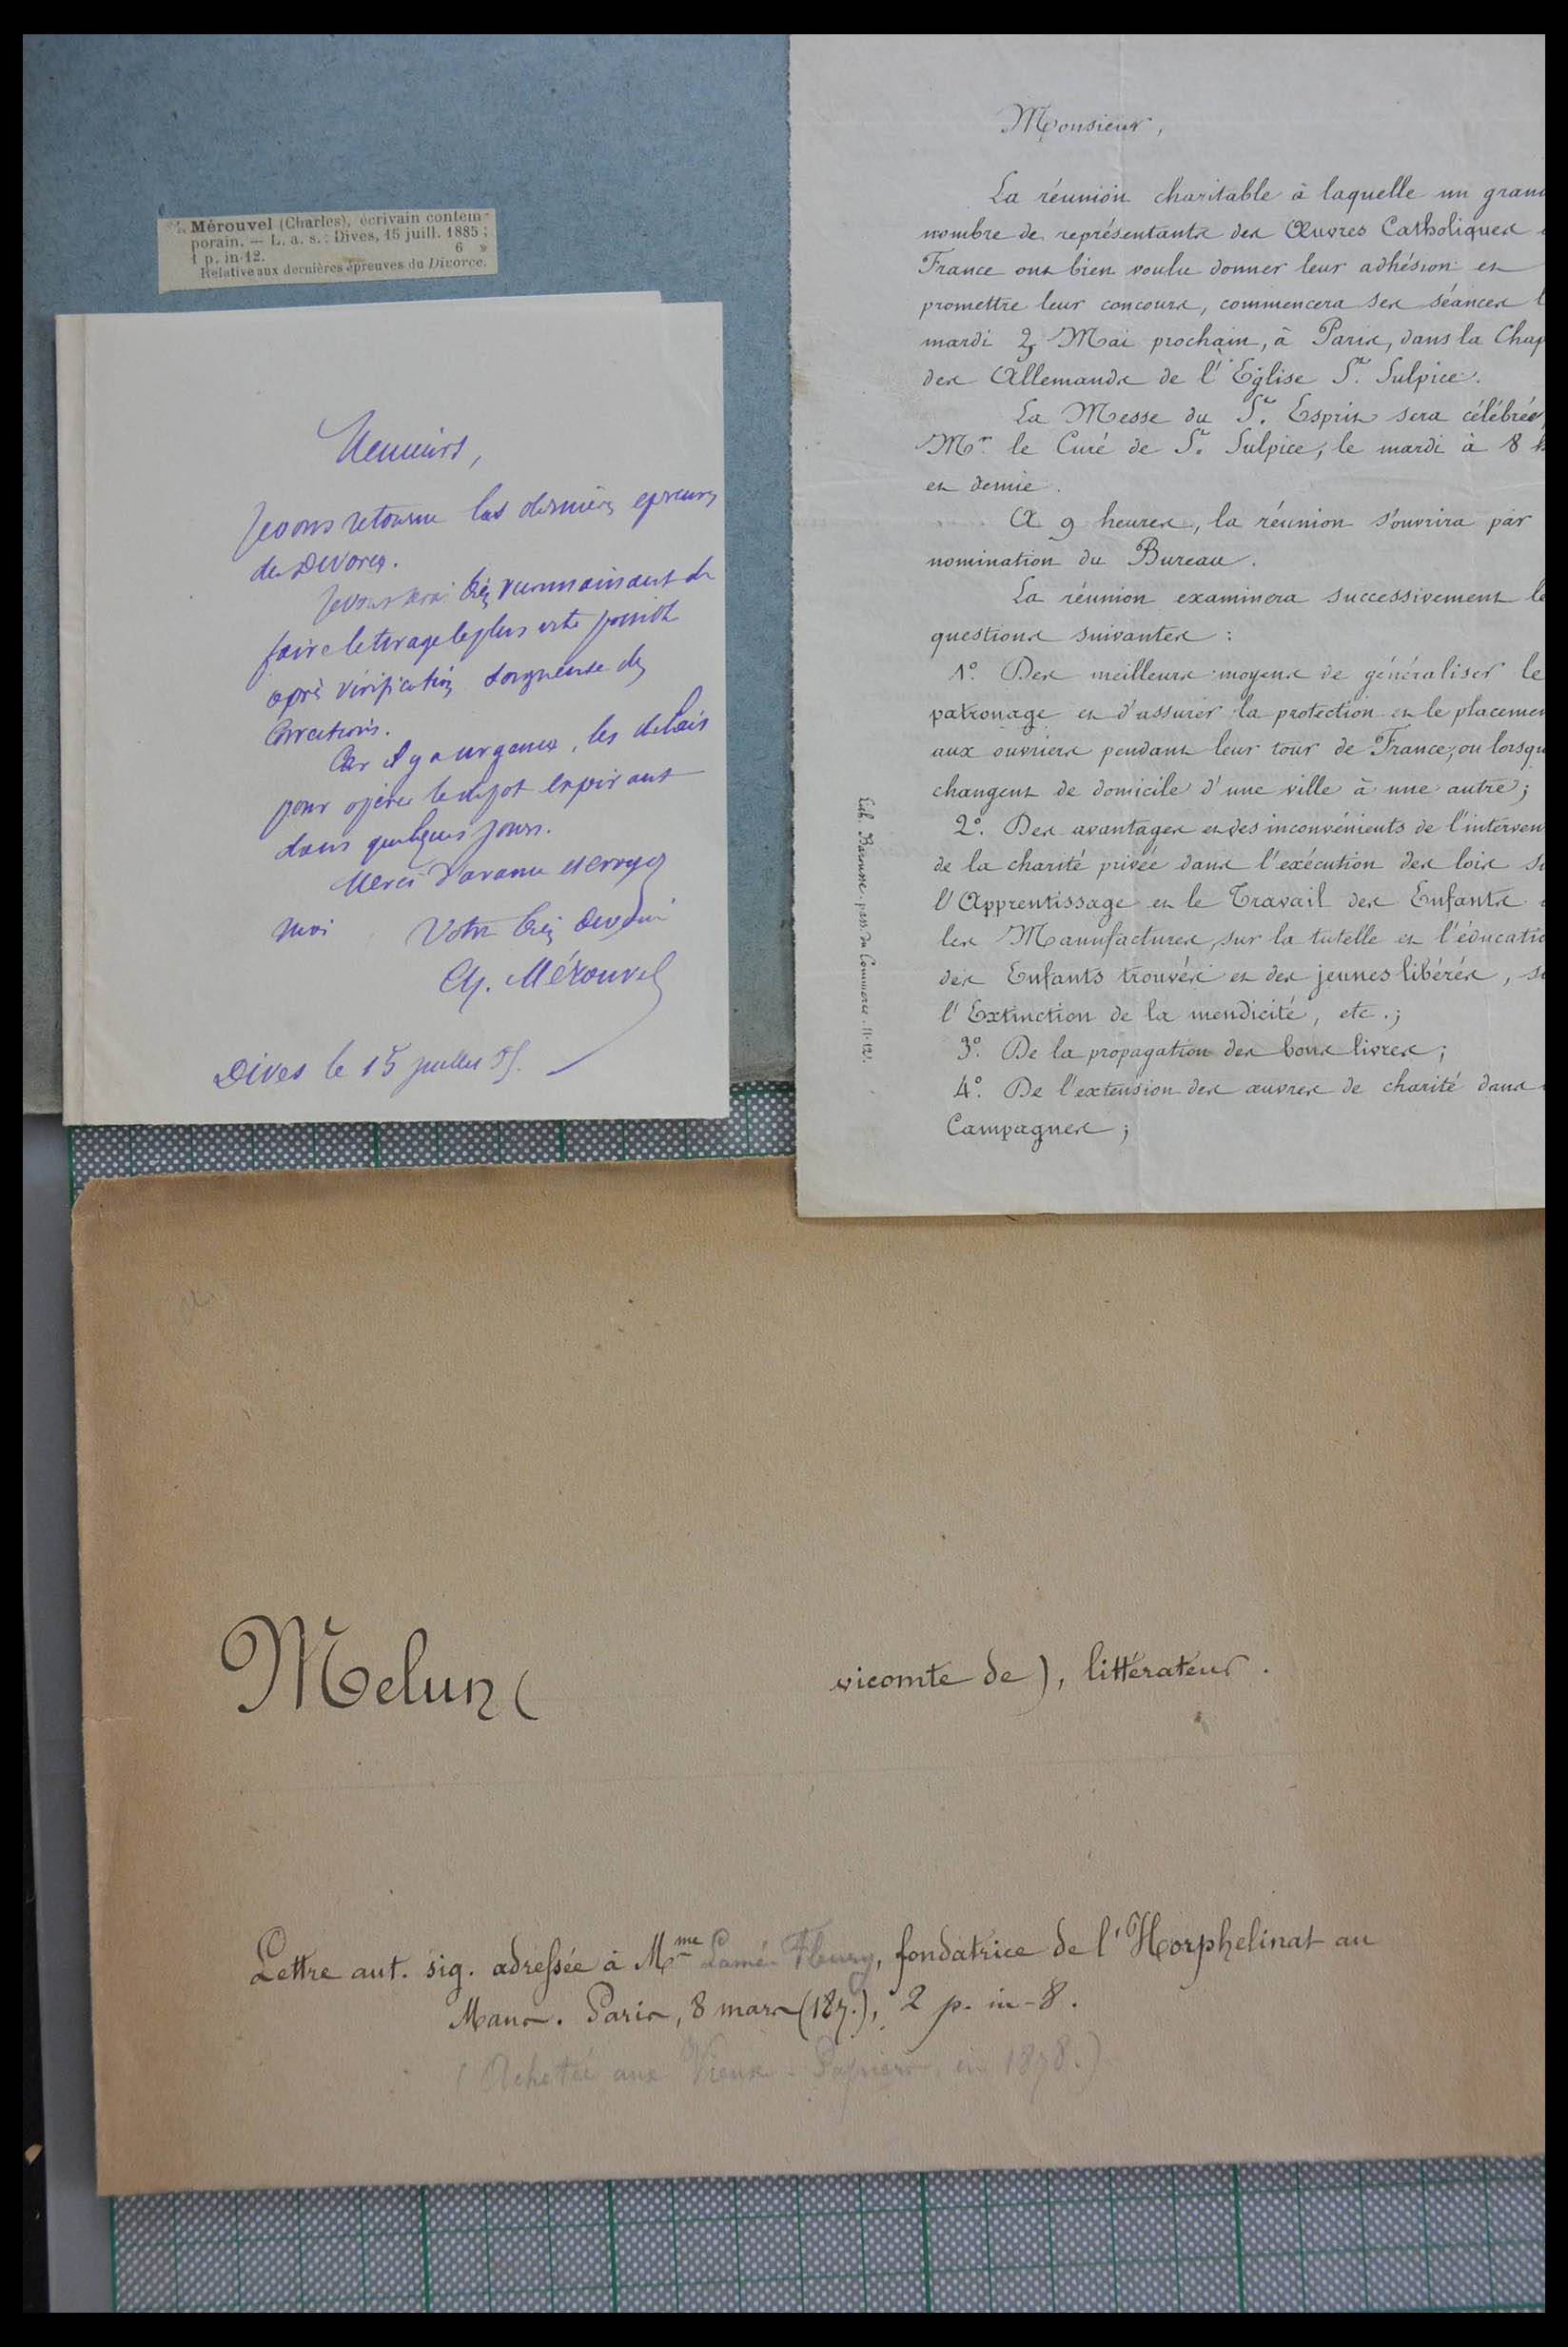 Mérouvel (Charles), écrivain contem-
porain. — L. a. s. : Dives, 15 juill. 1885 ;
1 p. in-12. 6 »
Relative aux dernières épreuves du Divorce.
Messieurs,
Je vous retourne les dernières epreuves
du Divorce.
Je vous serai très reconnaissant de
faire le tirage le plus vite possible
après vérification soigneuse des
Corrections.
Car il y a urgence, les delais
pour opérer le depot expirant
dans quelques jours.
Merci d'avance et croyez
moi Votre très devoué
Ch. Mérouvel
Dives le 15 juillet 85.
Monsieur,
La réunion charitable à laquelle un gran
nombre de représentants des Œuvres Catholiques
France ont bien voulu donner leur adhésion et
promettre leur concours, commencera ses séances l
mardi 2 Mai prochain, à Paris, dans la Chap
des Allemands de l'Eglise St. Sulpice.
La Messe du St. Esprit sera célébrée
Mr. le Curé de St. Sulpice, le mardi à 8 h
et demie.
A 9 heures, la réunion s'ouvrira par
nomination du Bureau.
La réunion examinera successivement le
questions suivantes :
1º. Des meilleurs moyens de généraliser le
patronage et d'assurer la protection et le placemen
aux ouvriers pendant leur tour de France, ou lorsqu
changent de domicile d'une ville à une autre ;
2º. Des avantages et des inconvénients de l'interven
de la charité privée dans l'exécution des lois s
l'Apprentissage et le Travail des Enfants
les Manufactures, sur la tutelle et l'éducatio
des Enfants trouvés et des jeunes libérés, s
l'Extinction de la mendicité, etc. ;
3º. De la propagation des bons livres ;
4º. De l'extension des œuvres de charité dans
Campagnes ;
Lith. Barousse, pass. du Commerce. 11-12.
Melun ( vicomte de), littérateur.
Lettre aut. sig. adressée à Mme Lamé Fleury, fondatrice de l'Horphelinat au
Mans. Paris, 8 mars (187.), 2 p. in-8.
(Achetée aux Vieux-Papiers, en 1878.)